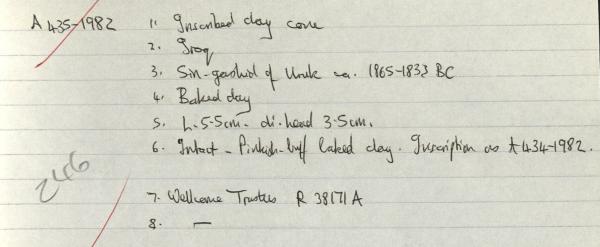 A 435-1982 1. Inscribed clay cone
2. Iraq
3. Sin-gashid of Uruk ca. 1865-1833 BC
4. Baked clay
5. L. 5.5cm. di. head 3.5cm.
6. Intact - Pinkish-buff baked clay. Inscription as A 434-1982.
246
7. Wellcome Trustees R 38171 A
8. —